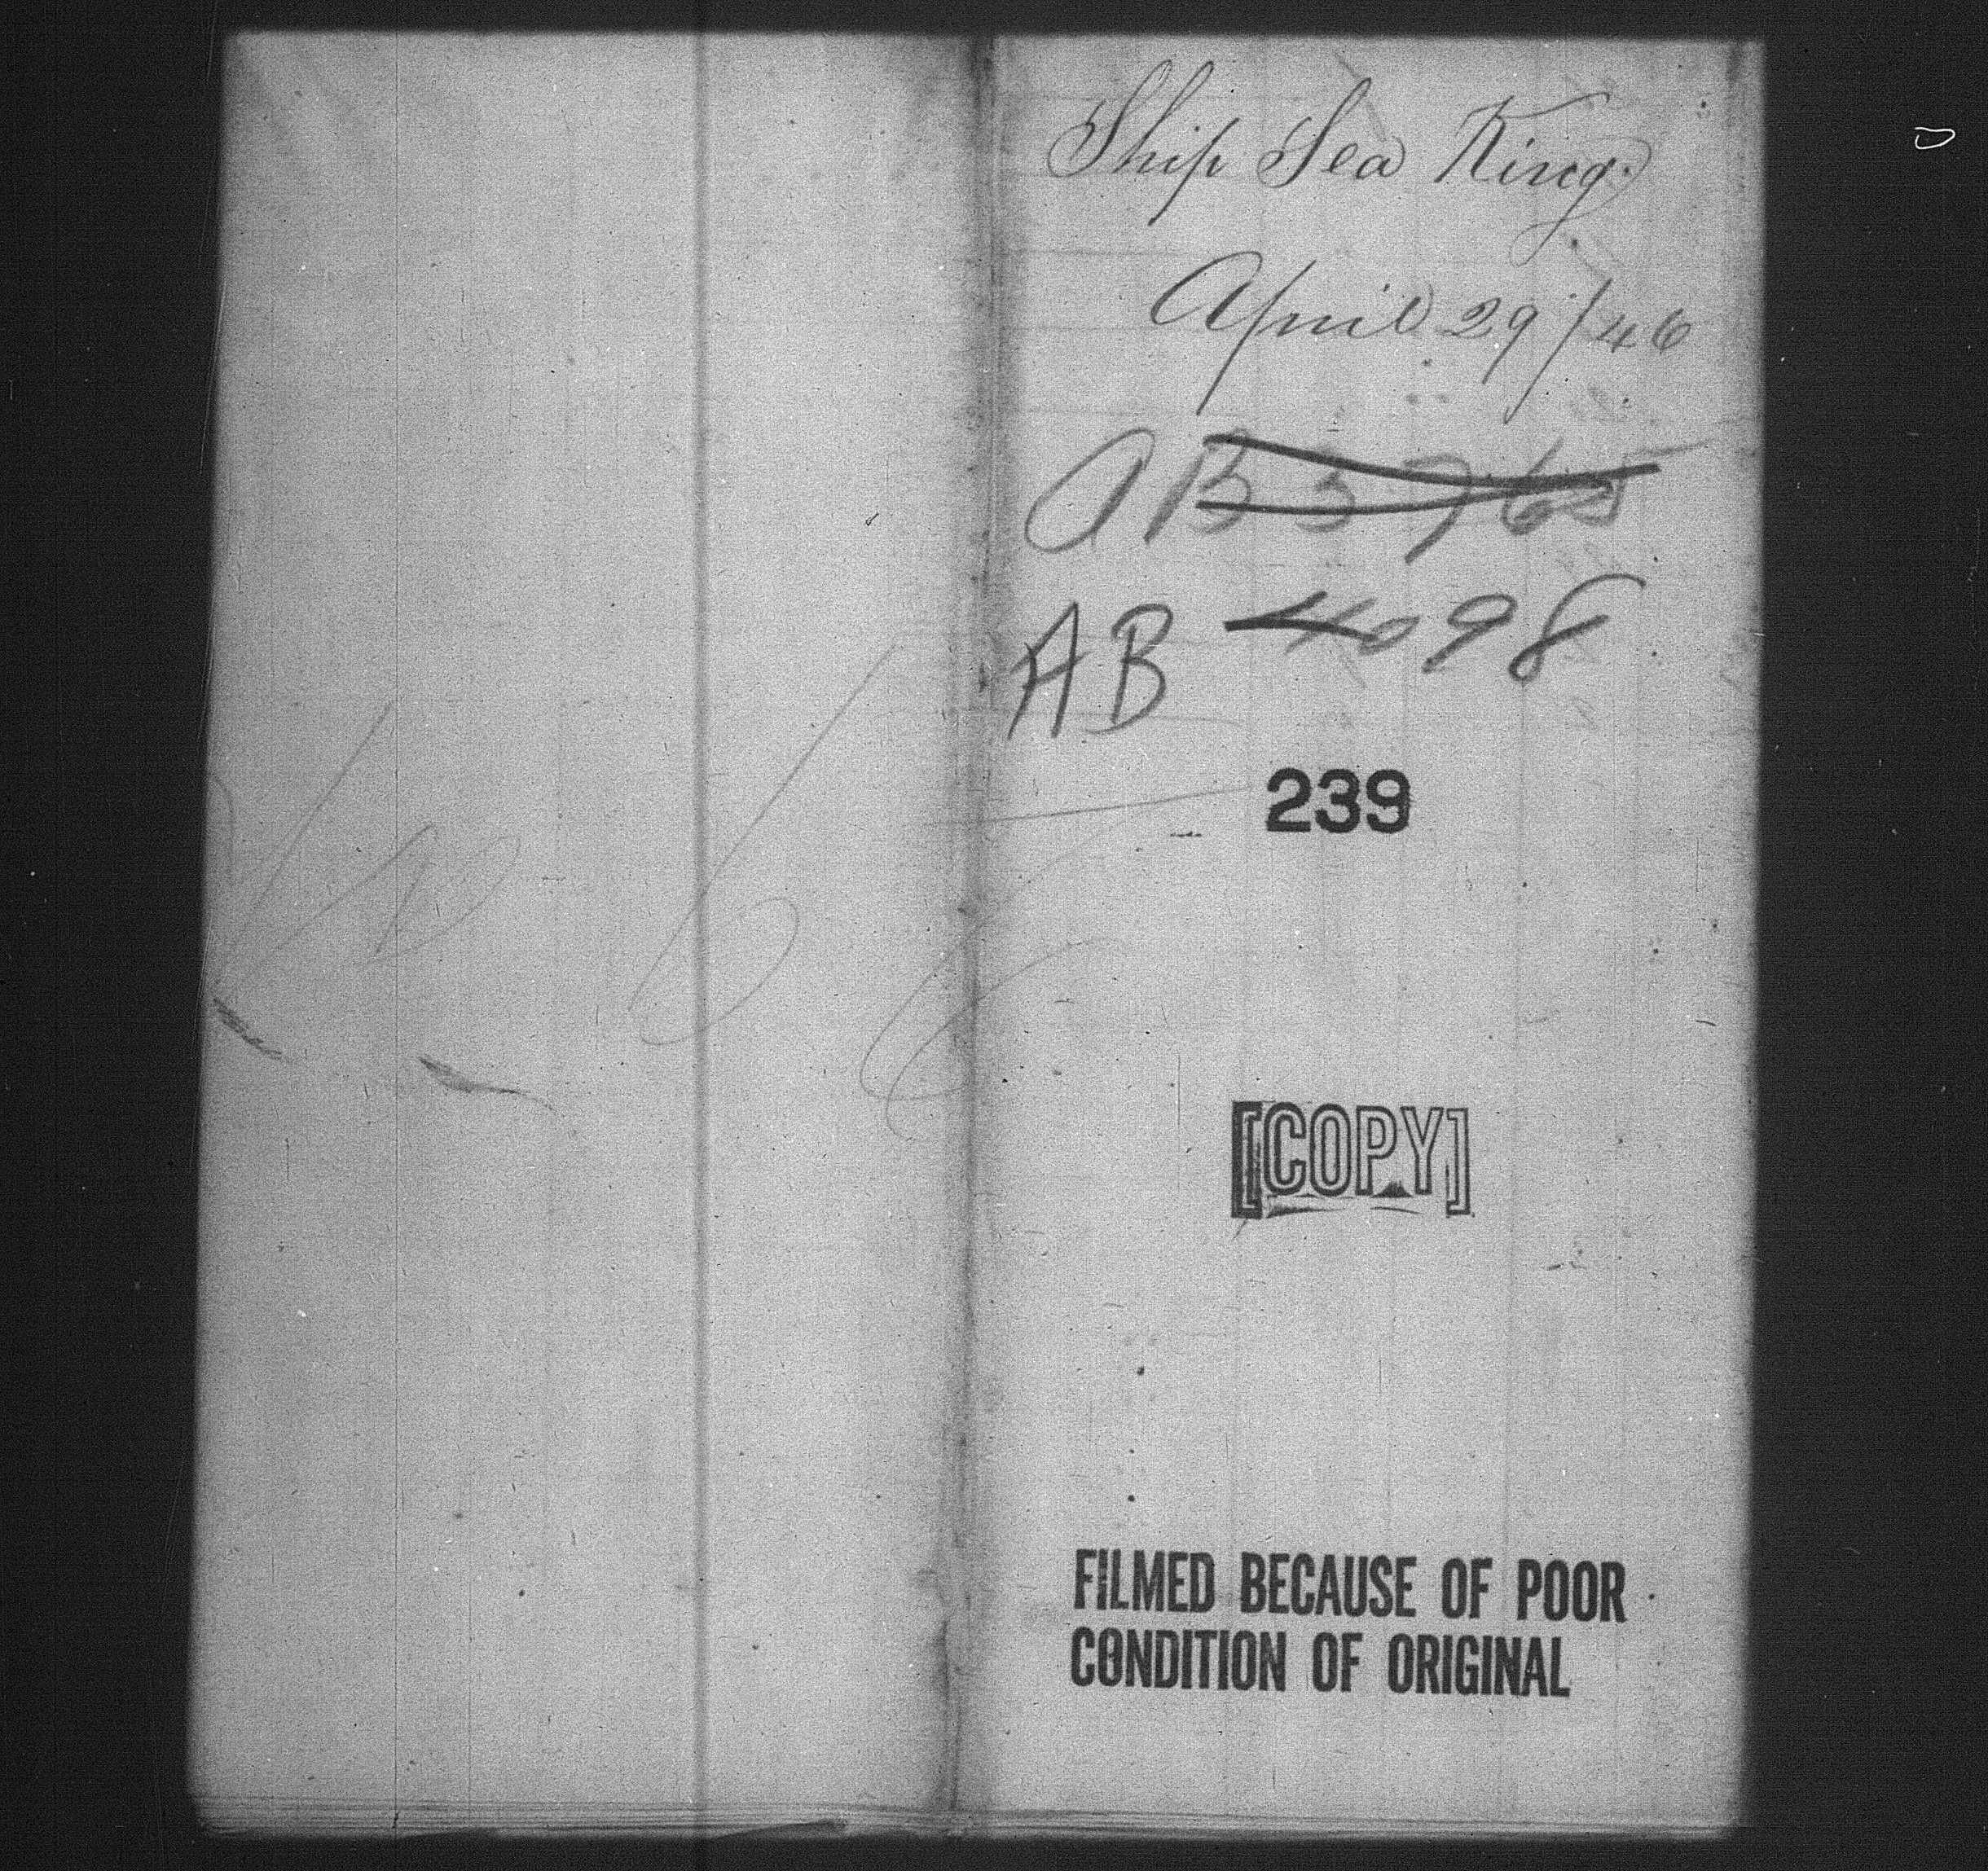 Ship Sea King.
April 29/46
AB 3765
AB 4098
239
[COPY]
FILMED BECAUSE OF POOR
CONDITION OF ORIGINAL